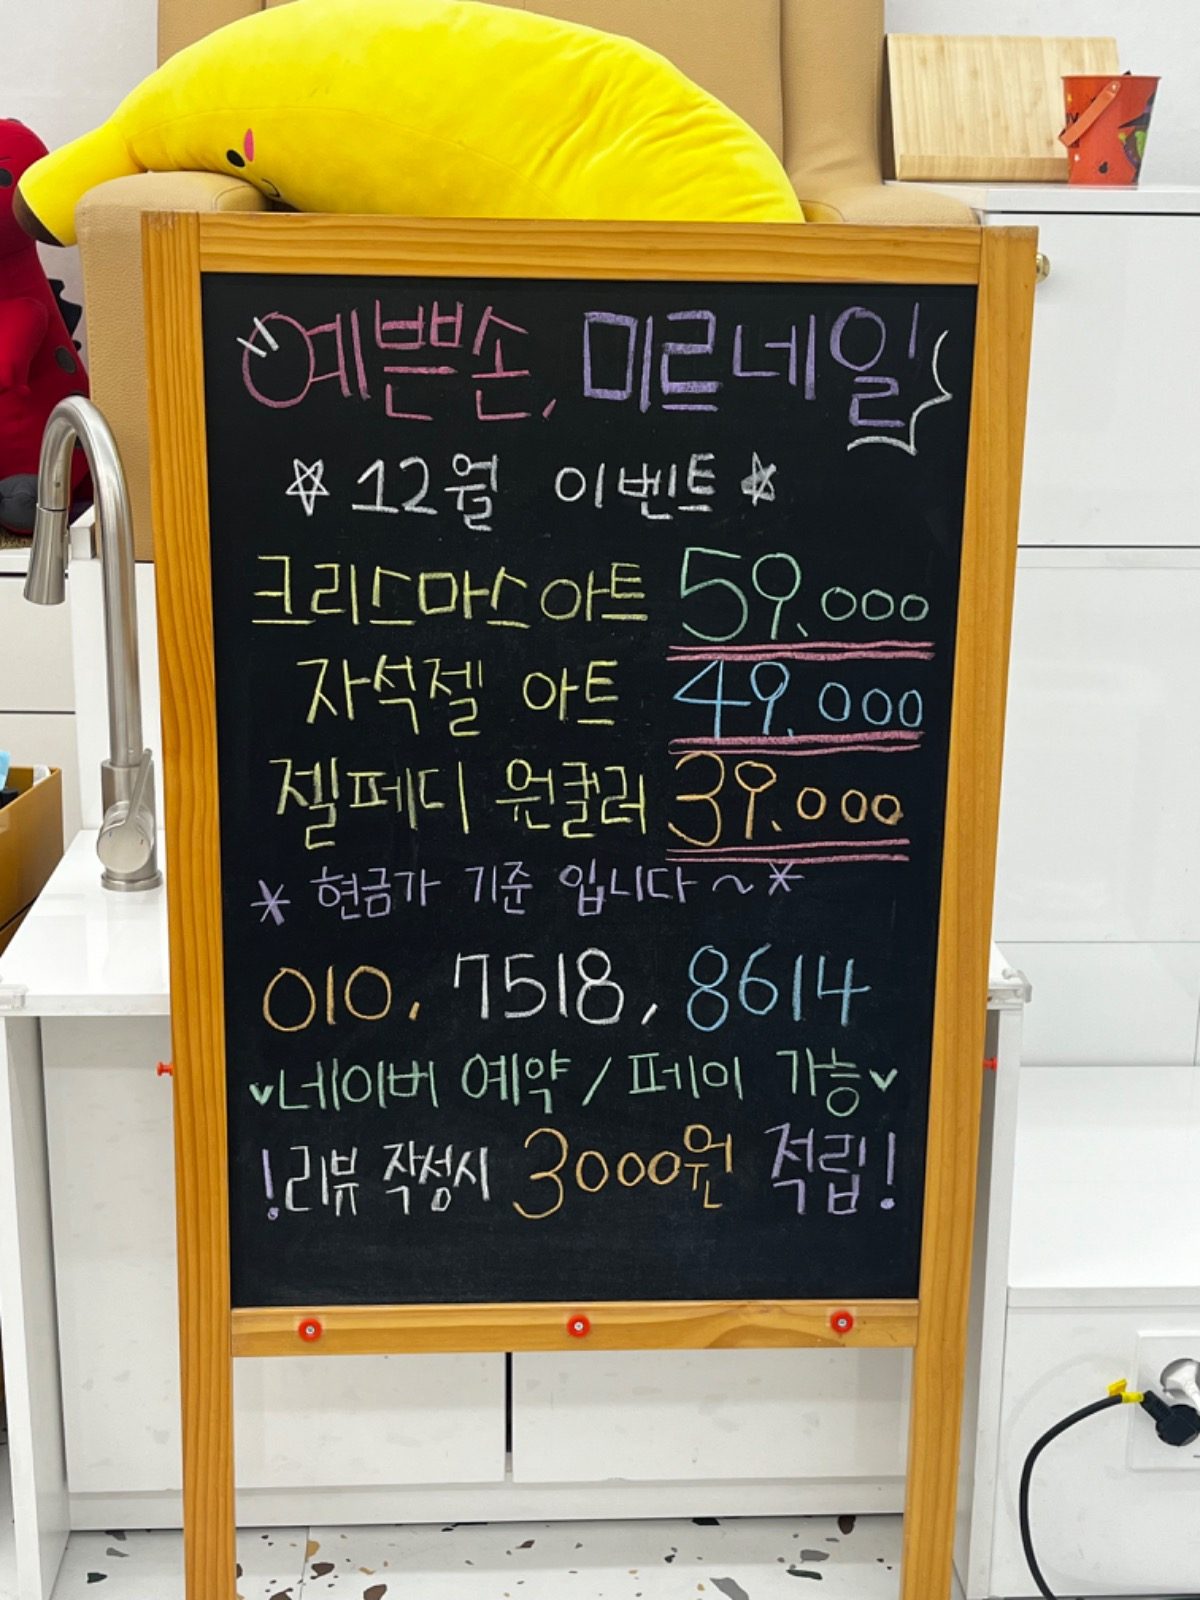 예쁜손, 미르네일
☆ 12월 이벤트 ☆
크리스마스아트 59.000
자석젤 아트 49.000
젤페디 원컬러 39.000
* 현금가 기준 입니다 ~ *
010, 7518, 8614
♥네이버 예약 / 페이 가능♥
!리뷰 작성시 3000원 적립!